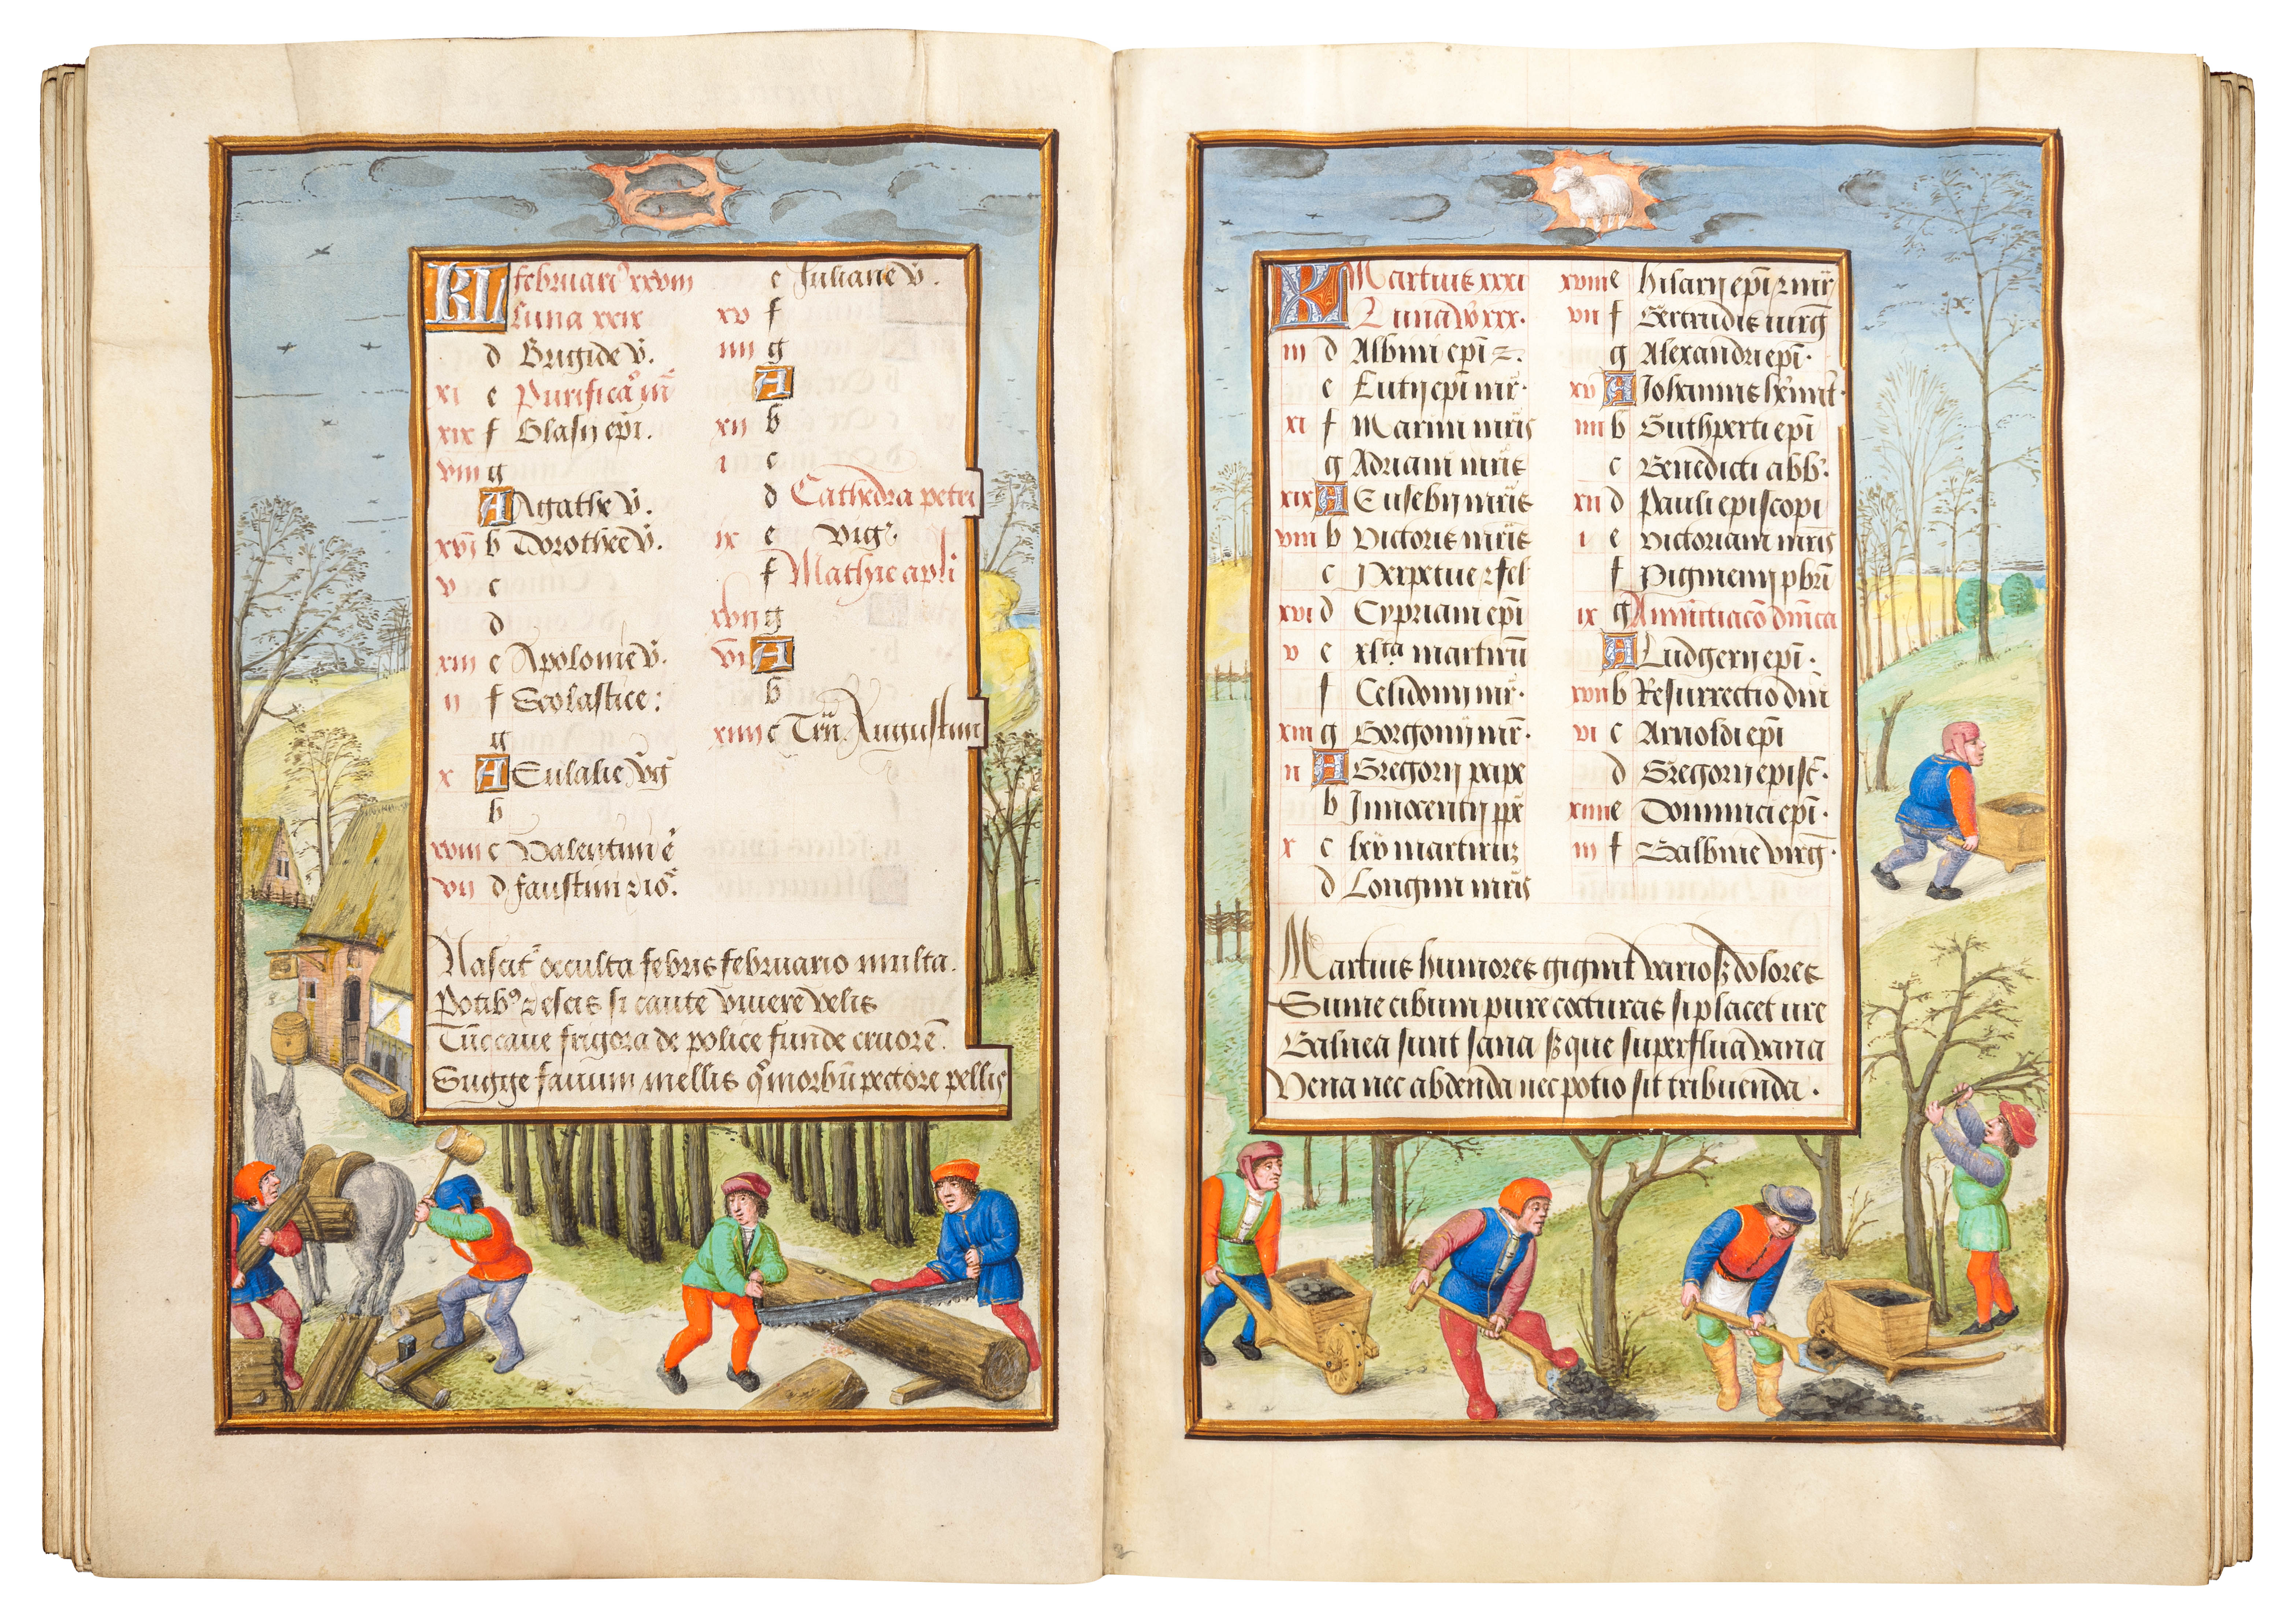 KL februari9 xxviii
Luna xxix
d Brigide v̄.
xi e Purificac̄o m̄
xix f Blasij ep̄i.
viii g
A Agathe v̄.
xvi b Dorothee v̄.
v c
d
xiii e Apolonie v̄.
ii f Scolastice:
g
x A Eulalie v̄g
b
xviii c Valentini
vii d faustini
e Juliane v̄.
xv f
iiii g
A
xii b
i c
d Cathedra petri
ix e vigᵃ.
f Mathie apli
xvii g
vi A
b
xiiii c Trn̄ Augustini
Nascit᷑ occulta febris februario multa.
Potib9 z escis si caute vivere velis
Tūc cave frigora de police funde cruorē.
Sugge favum mellis q̄ morbū pectore pellis
KL Martius xxxi
Luna v̄o xxx.
iii d Albini ep̄i z.
e Eutij ep̄i mr̄.
xi f Marini mr̄is
g Adriani mr̄is
xix A Eusebij mr̄is
viii b Victoris mr̄is
c Perpetue z fel
xvi d Cypriani ep̄i
v e xl᷑ᵗᵃ martirū
f Celidonij mr̄.
xiii g Gorgonij mr̄.
ii A Gregorij pape
b Innocentij pp̄e
x c lxv martirum
d Longini mr̄is
xviii e hilarij ep̄i z mr̄
vii f Gertrudis virḡ
g Alexandri ep̄i.
xv A Johannis
iiii b Guthperti ep̄i
c Benedicti abb̄.
xii d Pauli episcopi
i e Victoriani mr̄is
f Pigmenij pbrī
ix g Annūtiacō dn̄ica
A Ludgerij ep̄i.
xvii b Resurrectio dn̄i
vi c Arnoldi ep̄i
d Gregorij episc̄.
xiiii e Dominici ep̄i.
iii f Balbine virḡ.
Martius humores gignit varios dolores
Sume cibum pure cocturas si placet ure
Balnea sunt sana sꝫ que superflua vana
Vena nec abdenda nec potio sit tribuenda.